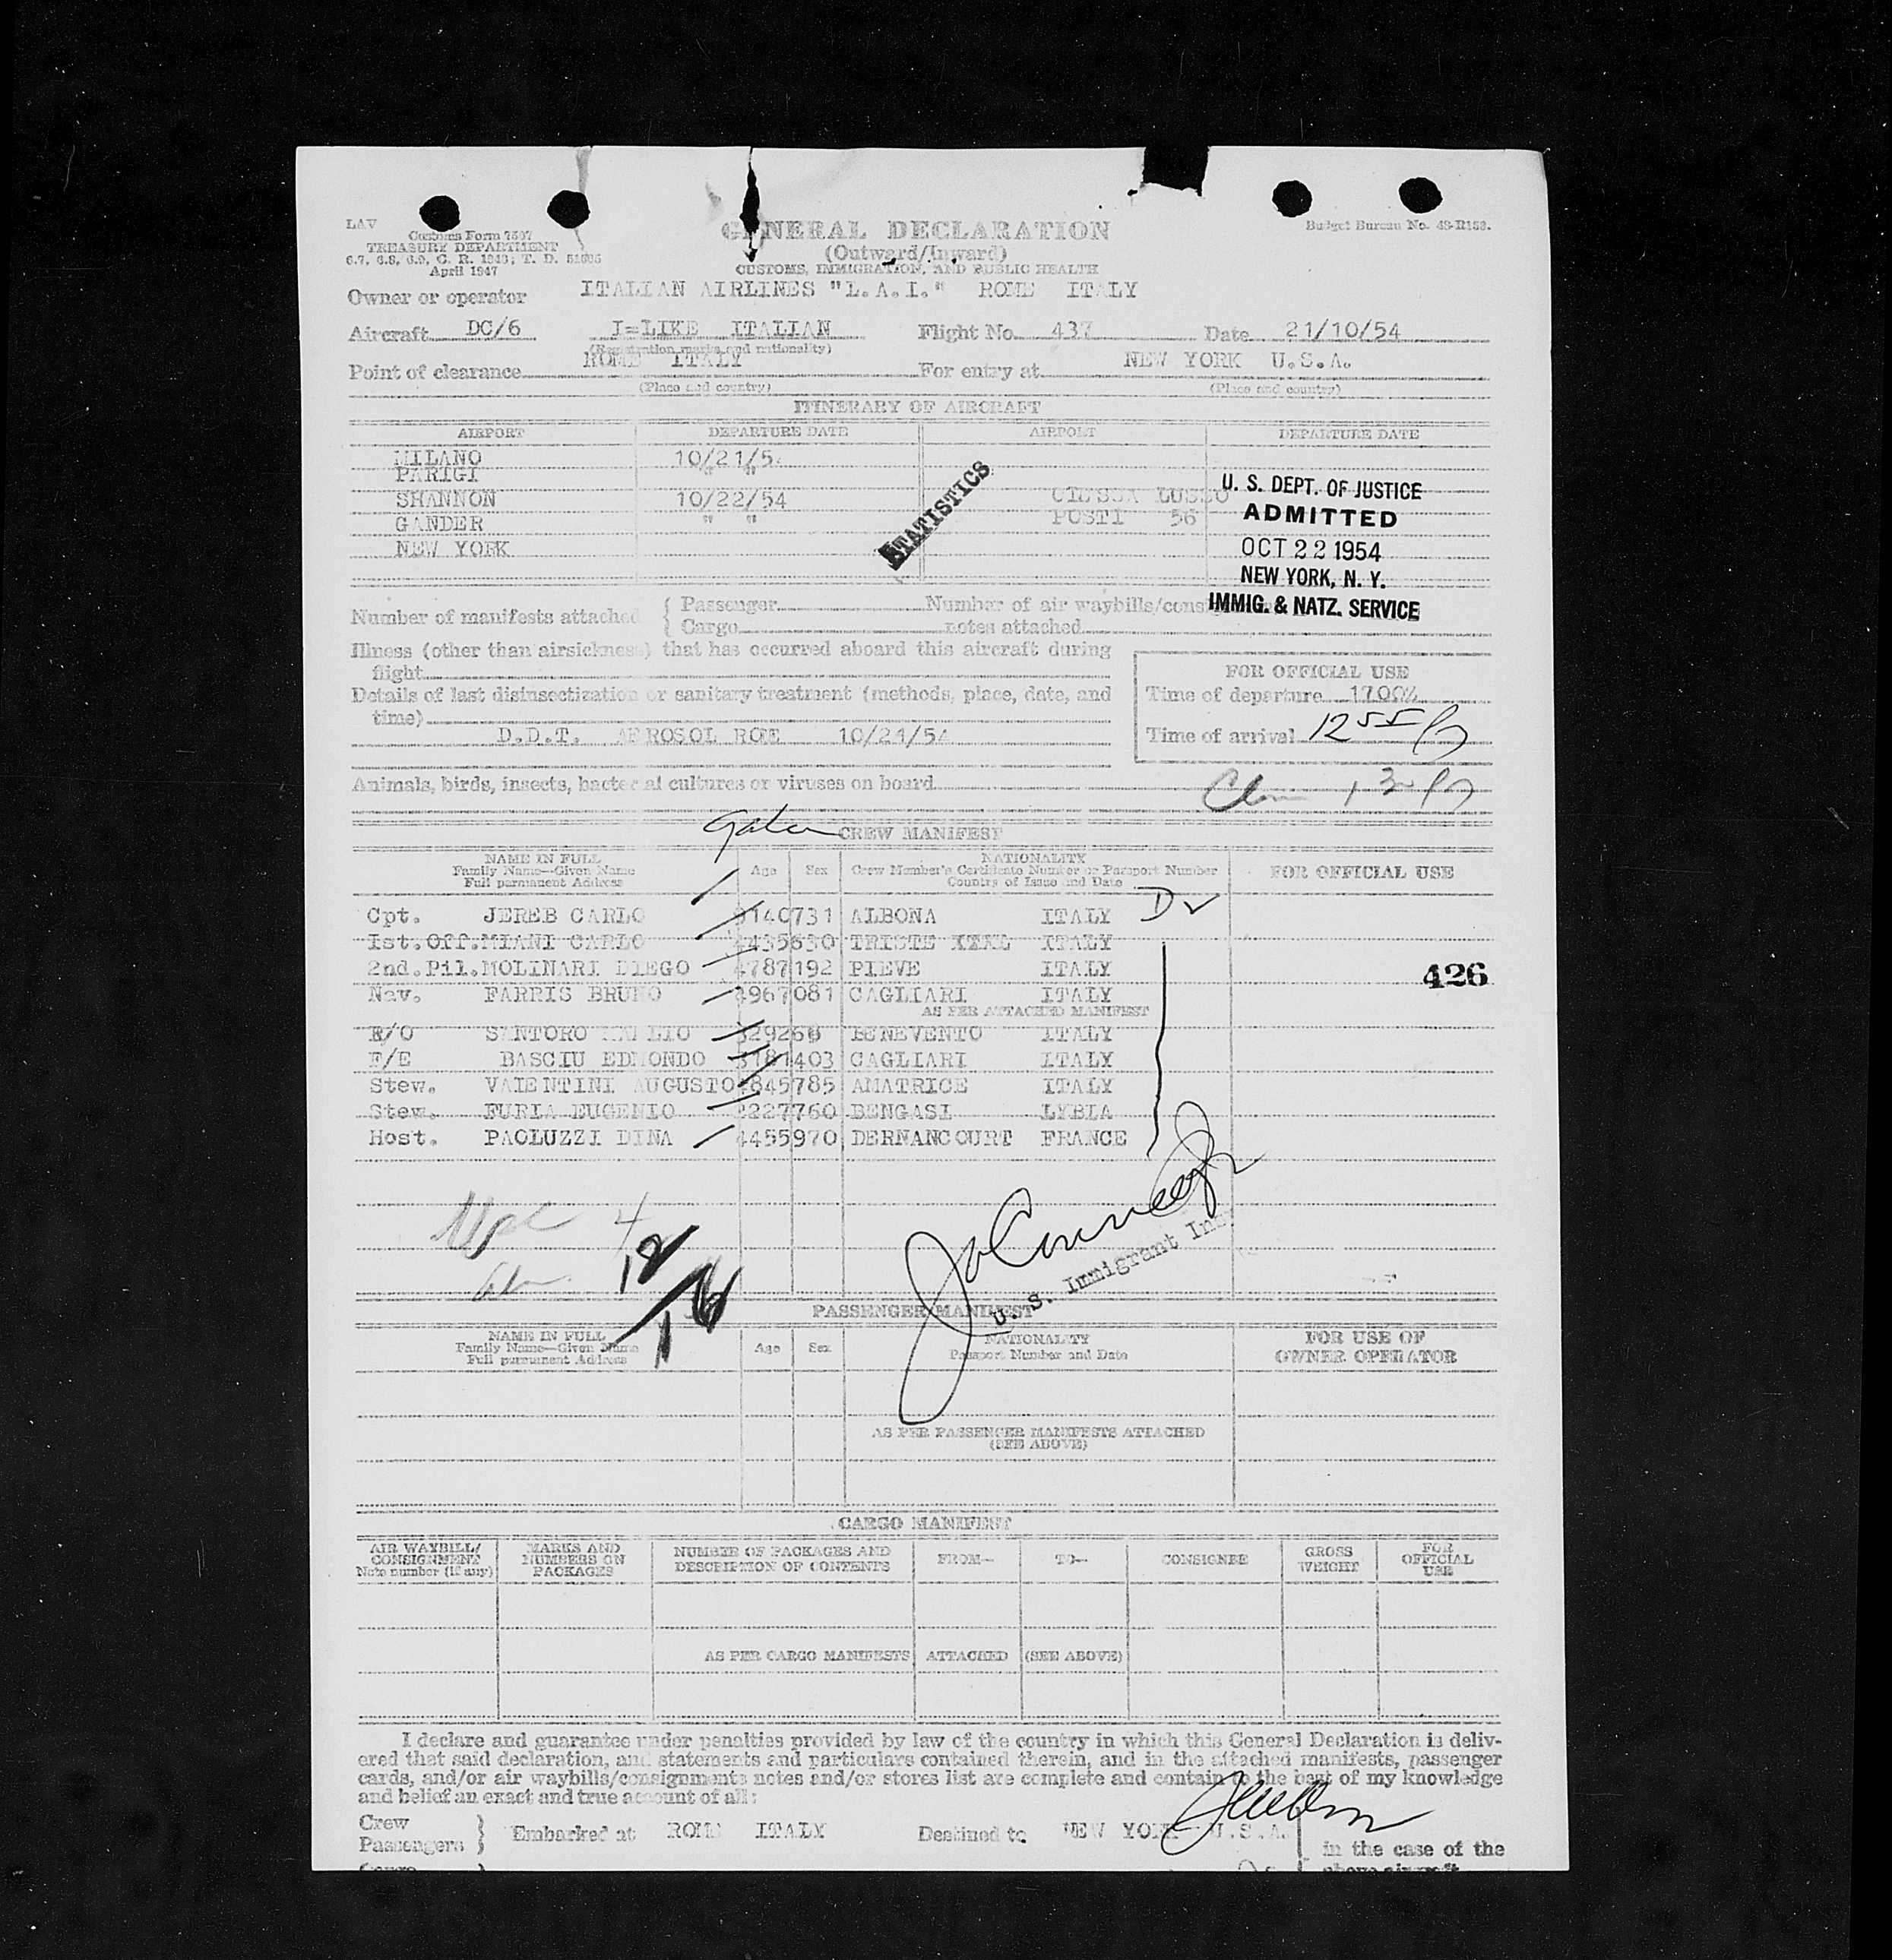 LAV
Customs Form 7507
TREASURY DEPARTMENT
6.7, 6.8, 6.9, C. R. 1943; T. D.
April 1947
GENERAL DECLARATION
(Outward/Inward)
CUSTOMS, IMMIGRATION, AND PUBLIC HEALTH
Budget Bureau No. 48-R158.
Owner or operator ITALIAN AIRLINES "L.A.I." ROME ITALY
Aircraft DC/6 I=LIKE ITALIAN Flight No. 437 Date 21/10/54
(Registration marks and nationality)
Point of clearance ROME ITALY For entry at NEW YORK U.S.A.
(Place and country) (Place and country)
ITINERARY OF AIRCRAFT
AIRPORT DEPARTURE DATE AIRPORT DEPARTURE DATE
MILANO 10/21/5
PARIGI " "
SHANNON 10/22/54 LUSSO
GANDER " " POSTI 56
NEW YORK
STATISTICS
U. S. DEPT. OF JUSTICE
ADMITTED
OCT 22 1954
NEW YORK, N. Y.
IMMIG. & NATZ. SERVICE
Number of manifests attached { Passenger Number of air waybills/cons
{ Cargo notes attached
Illness (other than airsickness) that has occurred aboard this aircraft during
flight
Details of last disinsectization or sanitary treatment (methods, place, date, and
time)
D.D.T. AEROSOL ROME 10/21/54
FOR OFFICIAL USE
Time of departure 1700Z
Time of arrival 1255
Animals, birds, insects, bacterial cultures or viruses on board
CREW MANIFEST
NAME IN FULL
Family Name—Given Name
Full permanent Address
Age Sex
NATIONALITY
Crew Member's Certificate Number or Passport Number
Country of Issue and Date
FOR OFFICIAL USE
Cpt. JEREB CARLO 140731 ALBONA ITALY
Ist.Off. MIANI CARLO 4435630 TRISTE ITALY
2nd.Pil. MOLINARI DIEGO 4787192 PIEVE ITALY
426
Nav. FARRIS BRUNO 967081 CAGLIARI ITALY
AS PER ATTACHED MANIFEST
R/O SANTORO BENEVENTO ITALY
F/E BASCIU EDMONDO 403 CAGLIARI ITALY
Stew. VALENTINI AUGUSTO 845785 AMATRICE ITALY
Stew. FURIA EUGENIO 2227760 BENGASI LYBIA
Host. PAOLUZZI DINA 4455970 DERNANCOURT FRANCE
U. S. Immigrant
PASSENGER MANIFEST
NAME IN FULL
Family Name—Given Name
Full permanent Address
Age Sex
NATIONALITY
Passport Number and Date
FOR USE OF
OWNER OPERATOR
AS PER PASSENGER MANIFESTS ATTACHED
(SEE ABOVE)
CARGO MANIFEST
AIR WAYBILL/
CONSIGNMENT
Note number (if any)
MARKS AND
NUMBERS ON
PACKAGES
NUMBER OF PACKAGES AND
DESCRIPTION OF CONTENTS
FROM— TO— CONSIGNEE
GROSS
WEIGHT
FOR
OFFICIAL
USE
AS PER CARGO MANIFESTS ATTACHED (SEE ABOVE)
I declare and guarantee under penalties provided by law of the country in which this General Declaration is deliv-
ered that said declaration, and statements and particulars contained therein, and in the attached manifests, passenger
cards, and/or air waybills/consignments notes and/or stores list are complete and contain to the best of my knowledge
and belief an exact and true account of all:
Crew
Passengers } Embarked at ROME ITALY Destined to NEW YORK U.S.A.
in the case of the
above aircraft